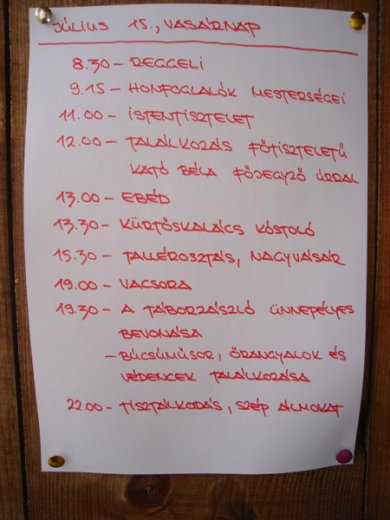 JÚLIUS 15., VASÁRNAP
8.30 – REGGELI
9.15 – HONFOGLALÓK MESTERSÉGEI
11.00 – ISTENTISZTELET
12.00 – TALÁLKOZÁS FŐTISZTELETŰ
KATÓ BÉLA FŐJEGYZŐ ÚRRAL
13.00 – EBÉD
13.30 – KÜRTŐSKALÁCS KÓSTOLÓ
15.30 – TALLÉROSZTÁS, NAGYVÁSÁR
19.00 – VACSORA
19.30 – A TÁBORZÁSZLÓ ÜNNEPÉLYES
BEVONÁSA
– BÚCSÚMŰSOR, ŐRANGYALOK ÉS
VÉDENCEK TALÁLKOZÁSA
22.00 – TISZTÁLKODÁS, SZÉP ÁLMOKAT